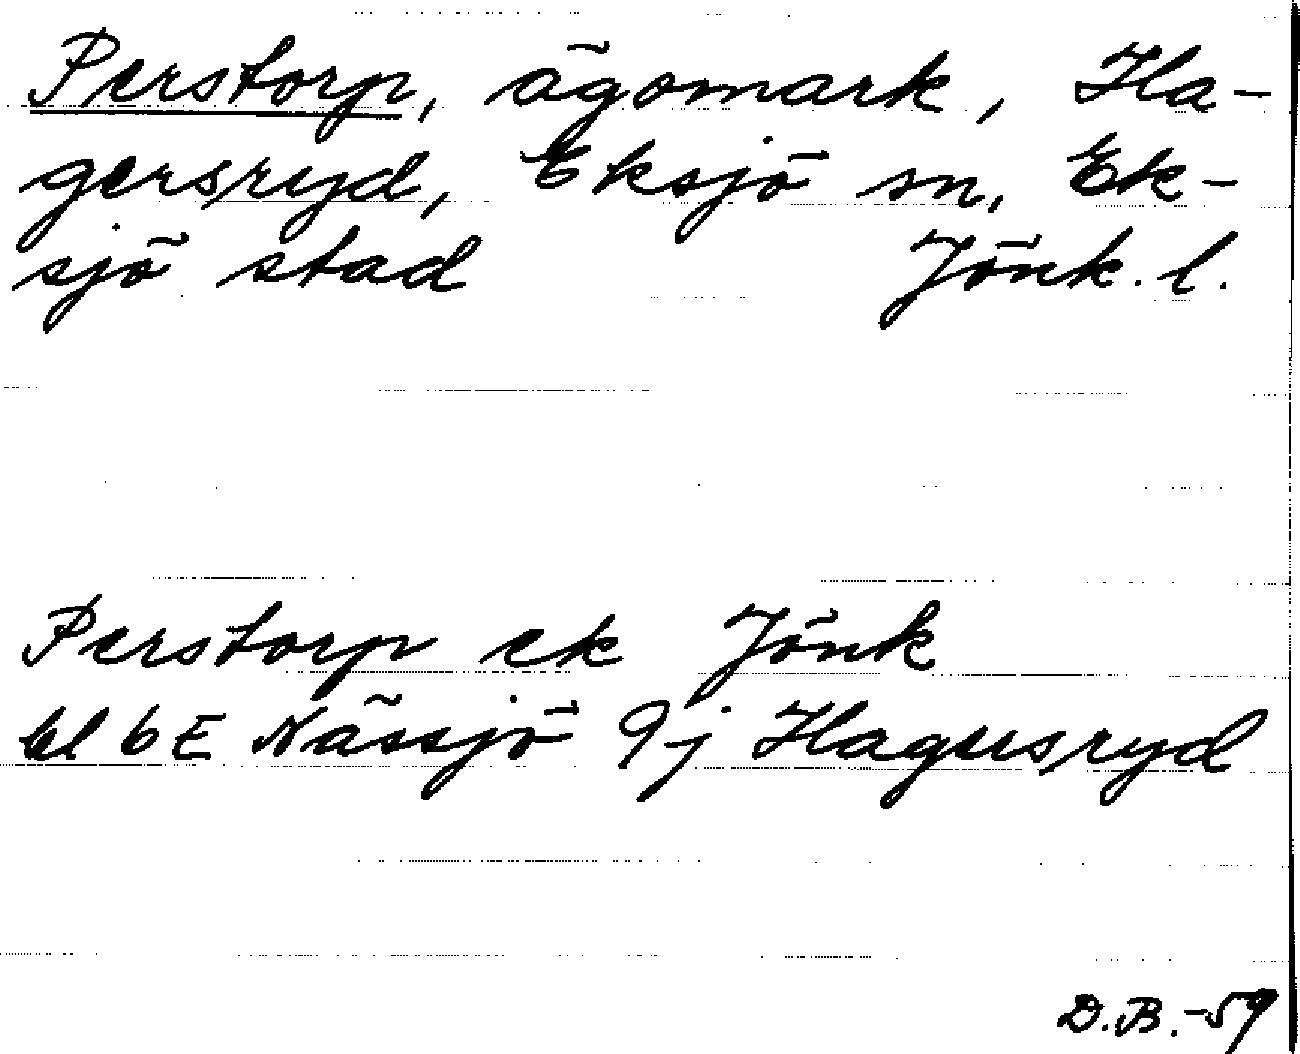 Perstorp, ägomark, Ha-
gersryd, Eksjö sn, Ek-
sjö stad Jönk. l.
Perstorp ek Jönk
bl 6E Nässjö 9j Hagersryd
D.B.-59